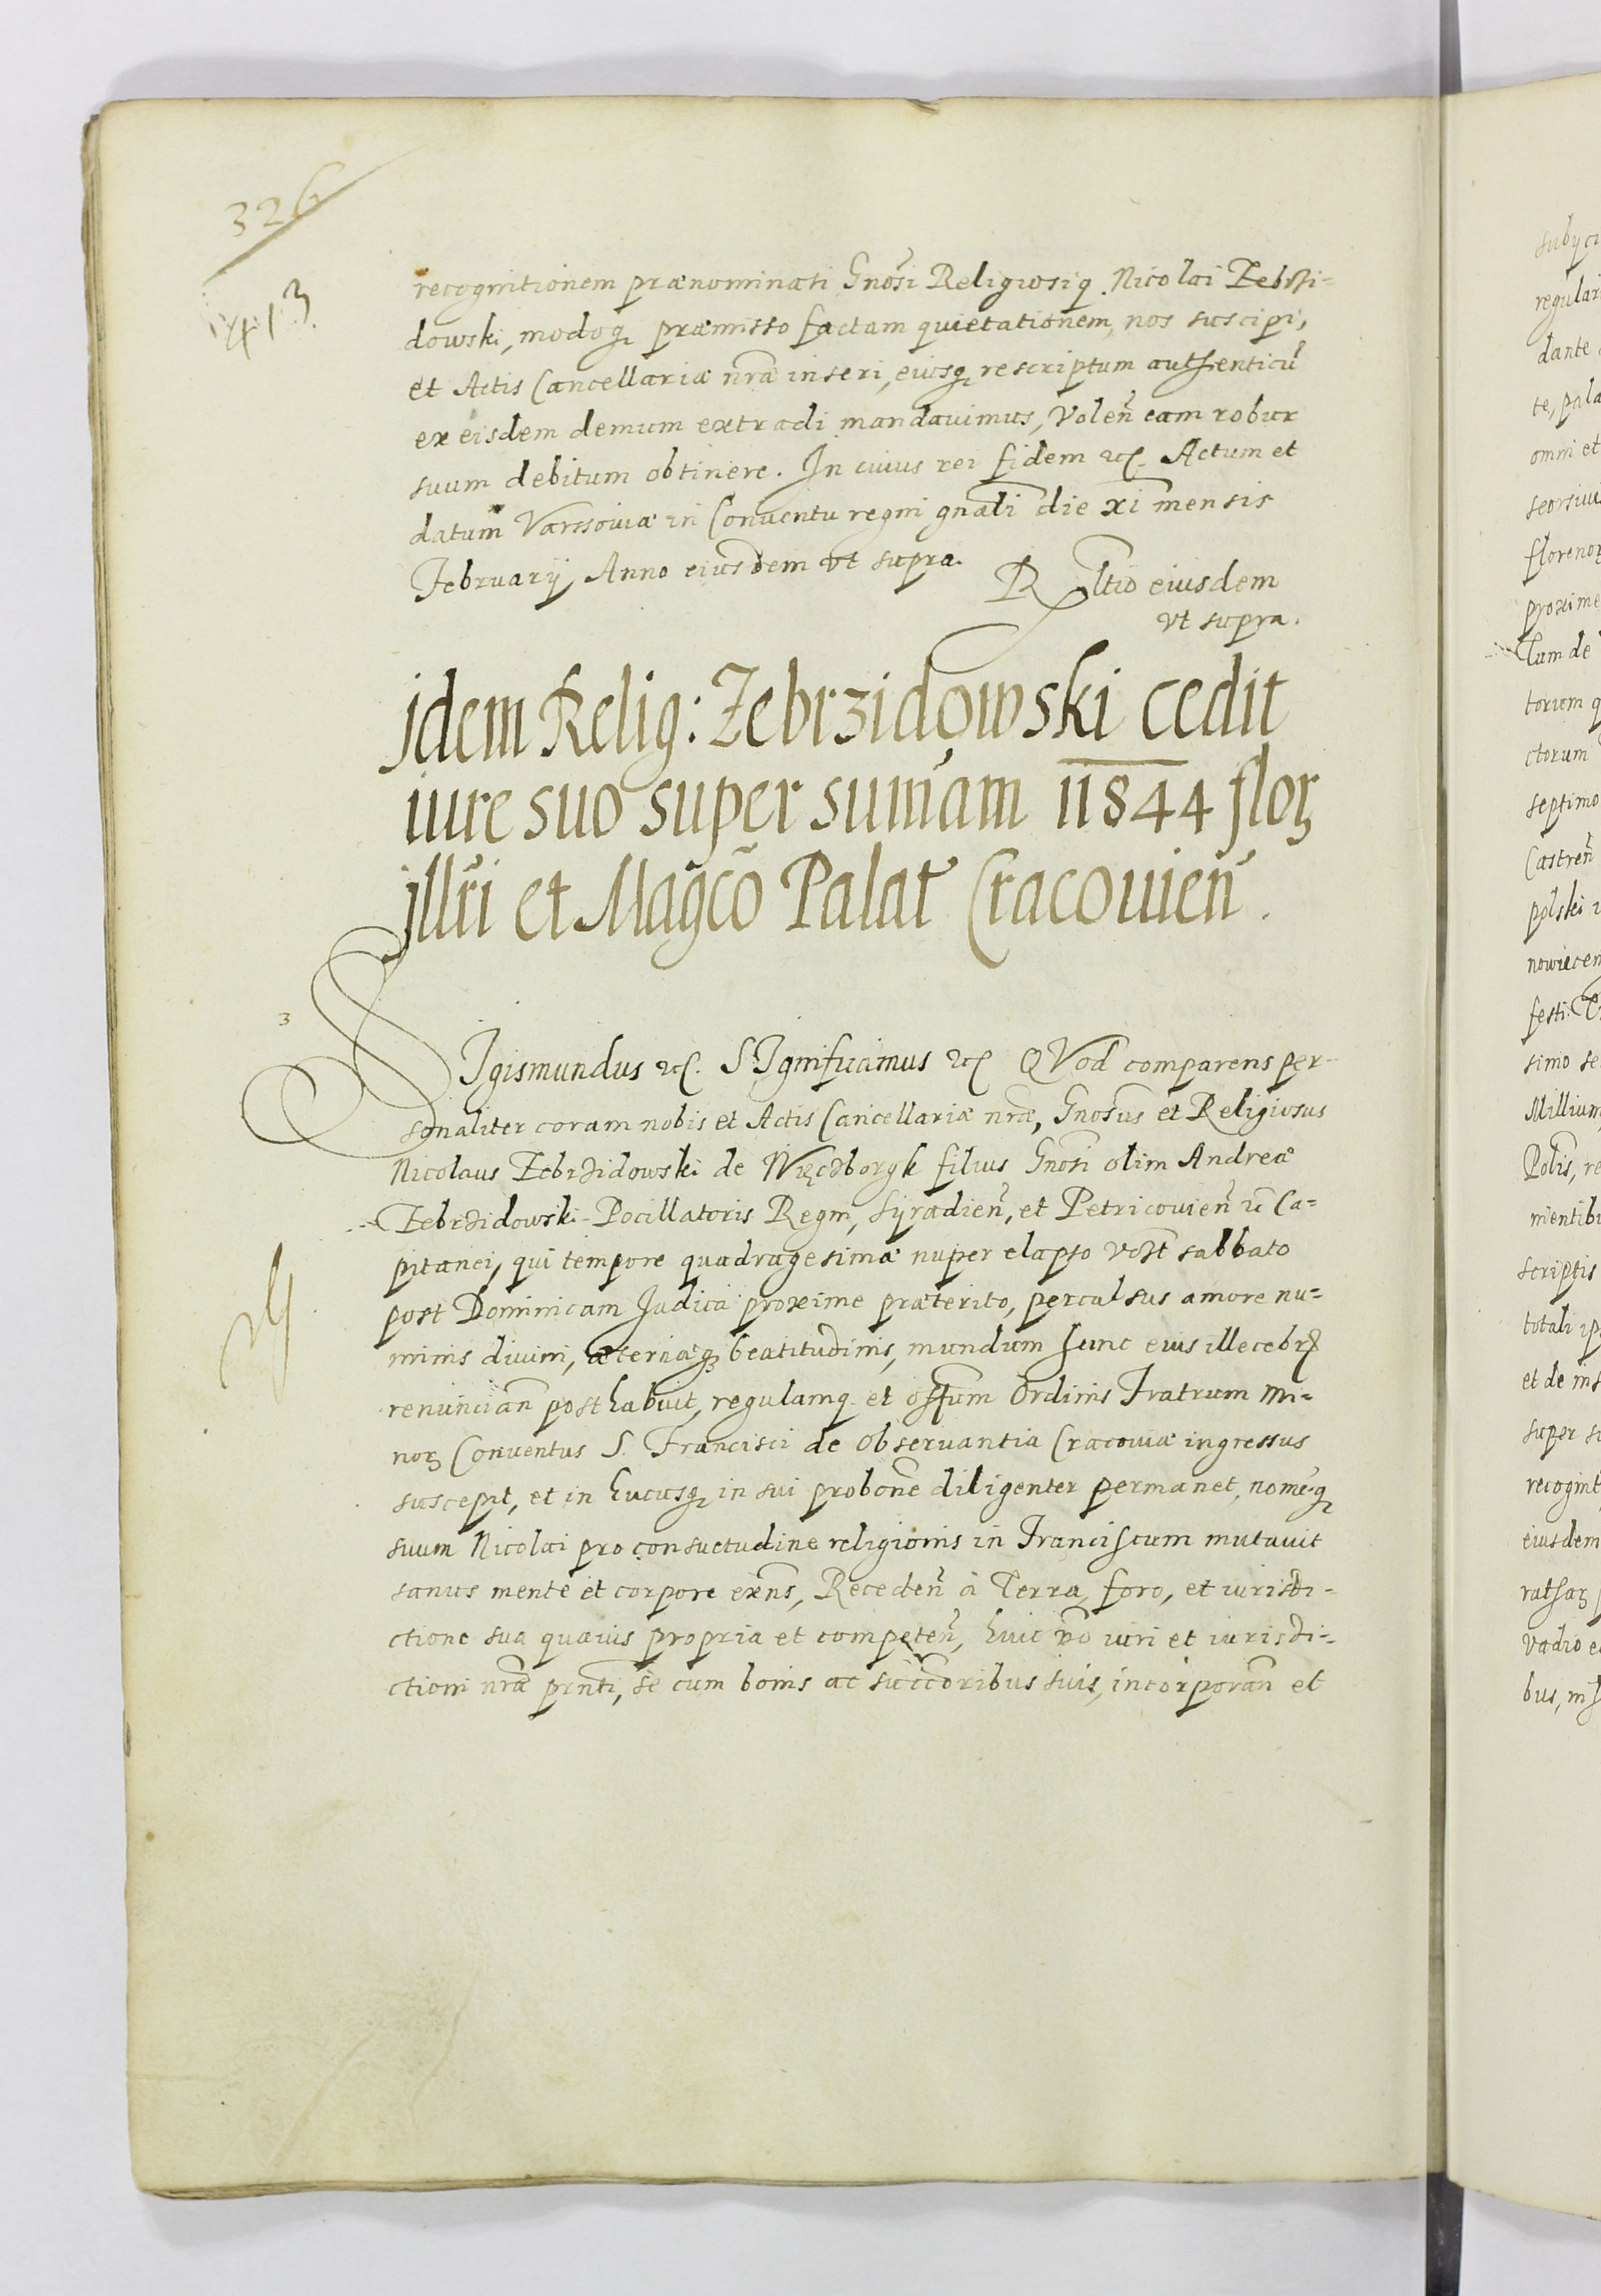 326
413
recognitionem prænominati Gnosi Religiosiq. Nicolai Zebrzi-
dowski, modoq præmisso factam quietationem, nos suscipi,
et Actis Cancellariæ nræ inseri, eiusq rescriptum authenticũ
ex eisdem demum extradi mandauimus, Volen̄ eam robur
suum debitum obtinere. In cuius rei fidem etc. Actum et
datum Varssoviæ in Conventu regni gnāli die xi mensis
Februarij, Anno eiusdem vt supra.
Rltio eiusdem
vt supra.
jdem Relig: Zebrzidowski cedit
iure suo super sum̄am 11844 floꝝ
jllri et Magco Palat Cracouien̄.
3
SIgismundus etc. SIgnificamus etc QVod comparens per-
sonaliter coram nobis et Actis Cancellariæ nræ, Gnosus et Religiosus
Nicolaus Zebrzidowski de Więczborgk filius Gnosi olim Andreæ
Zebrzidowski Pocillatoris Regni, Syradien̄, et Petricouien̄ etc Ca-
pitanei, qui tempore quadragesimæ nuper elapso vezt sabbato
post Dominicam Judica proxime præterito, perculsus amore nu-
minis diuini, æternæq beatitudinis, mundum hunc eius illecebr
renuncian̄ posthabuit, regulamq et offium Ordinis Fratrum Mi-
noꝝ Conuentus S. Francisci de Obseruantia Cracouiæ ingressus
suscepit, et in hucusq in sui probone diligenter permanet, nomeq
suum Nicolai pro consuetudine religionis in Franciscum mutauit
sanus mente et corpore exns, Receden̄ à Terra, foro, et iurisdi-
ctione sua quauis propria et competen̄, huic vo iuri et iurisdi-
ctioni nræ prnti, se cum bonis ac succcoribus suis, incorporan̄ et